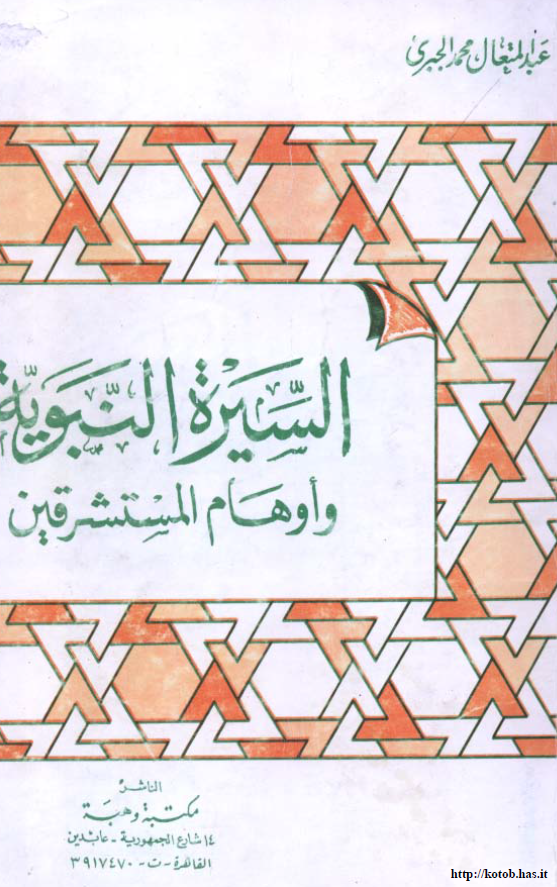 عبد المتعال محمد الجبري
السِّيَرة النَّبَويَّة
وأوهام المستشرقين
الناشر
مكتبة وهبة
١٤ شارع الجمهورية - عابدين
القاهرة - ت - ٣٩١٧٤٧٠
http://kotob.has.it